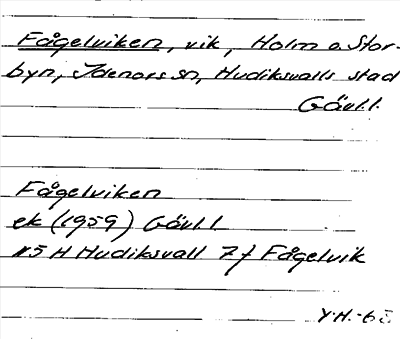 Fågelviken, vik, Holm o. Stor-
byn, Idenors sn, Hudiksvalls stad
Gävl.l.
Fågelviken
ek (1959) Gävl.l.
15 H Hudiksvall 7f Fågelvik
Y.H.-6